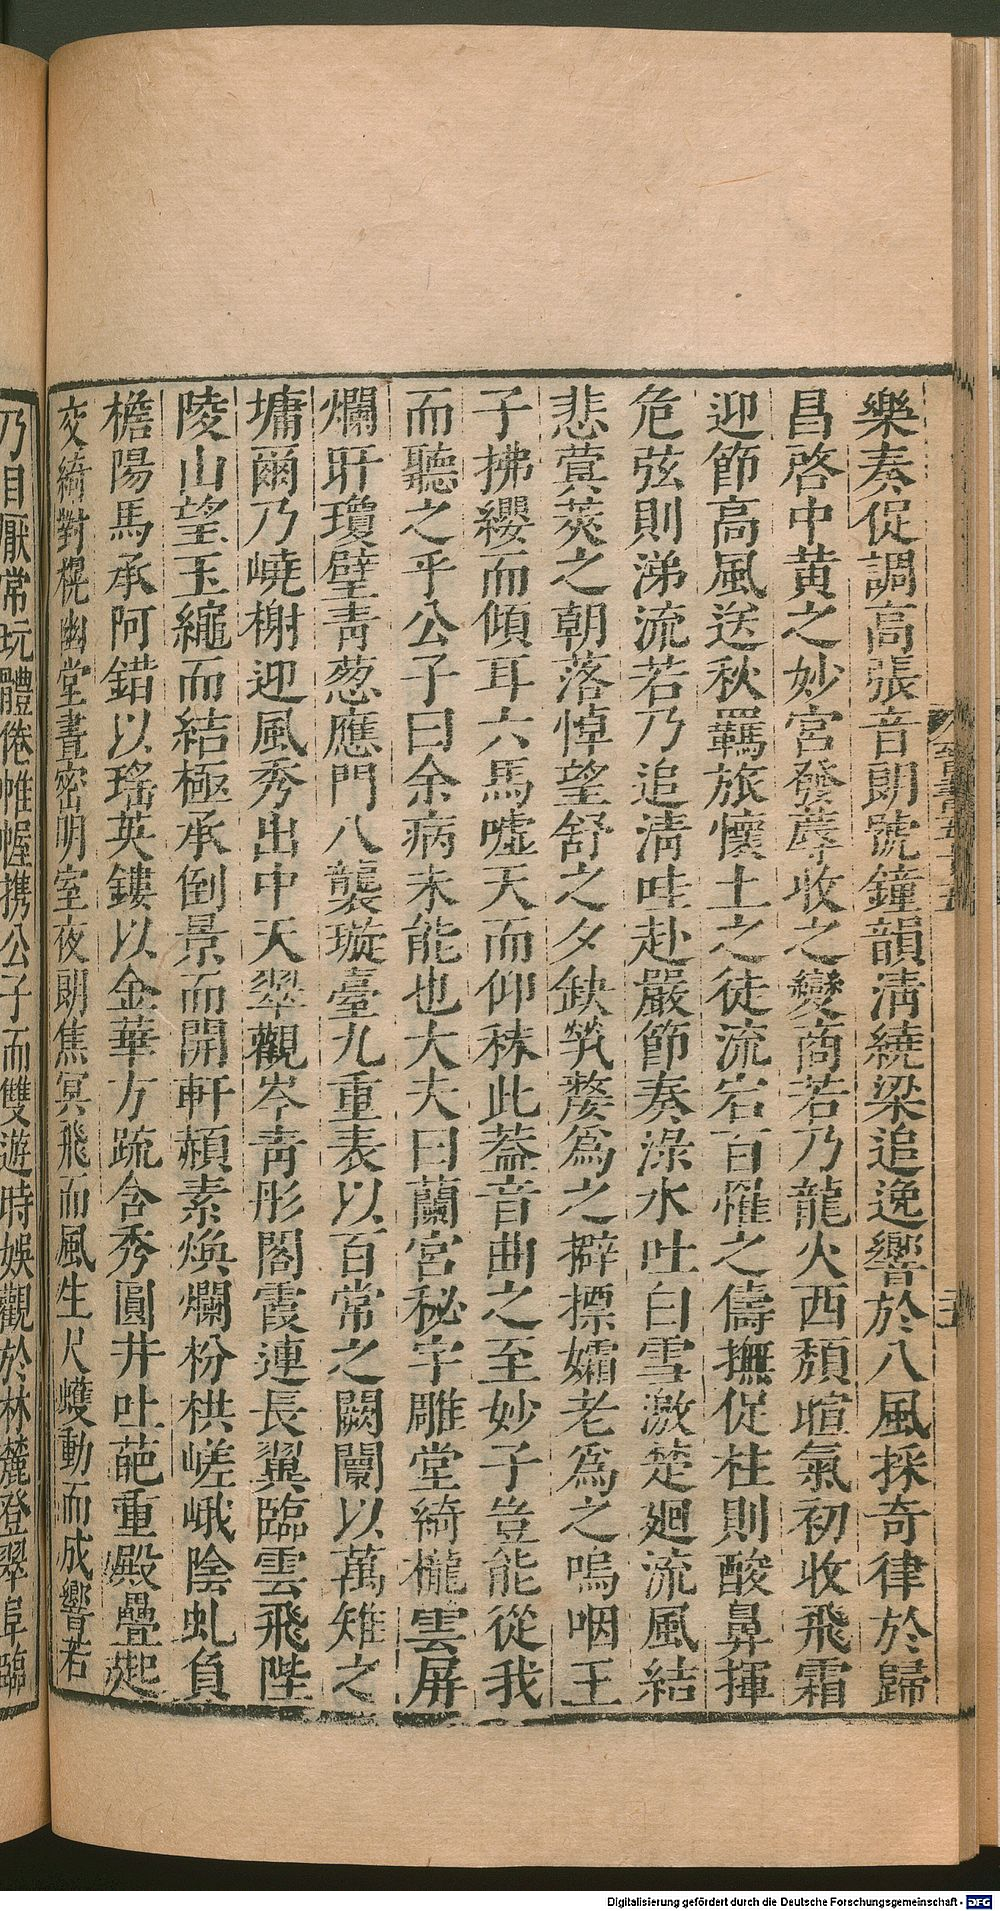 樂奏促調高張音朗號鐘韻清繞梁追逸響於八風採奇律於歸
昌啓中黄之妙宮發蓐收之變商若乃龍火西頹暄氣初收飛霜
迎節高風送秋羈旅懷土之徒流宕百罹之儔撫促柱則酸鼻揮
危弦則涕流若乃追清哇赴嚴節奏淥水吐白雪激楚廻流風結
悲蓂莢之朝落悼望舒之夕缺煢嫠爲之擗摽孀老爲之嗚咽王
子拂纓而傾耳六馬噓天而仰秣此蓋音曲之至妙子豈能從我
而聽之乎公子曰余病未能也大夫曰蘭宮秘宇雕堂綺櫳雲屏
爛旰瓊壁青葱應門八襲璇臺九重表以百常之闕闌以萬雉之
墉爾乃嶢榭迎風秀出中天翠觀岑青彤閣霞連長翼臨雲飛陛
陵山望玉繩而結極承倒景而開軒赬素煥爛枌栱嵯峨陰虬負
檐陽馬承阿錯以瑤英鏤以金華方疏含秀圓井吐葩重殿疊起
交綺對榥幽堂晝密明室夜朗焦冥飛而風生尺蠖動而成響若
乃目厭常玩體倦帷幄攜公子而雙遊時娛觀於林麓登翠阜臨
Digitalisierung gefördert durch die Deutsche Forschungsgemeinschaft - DFG